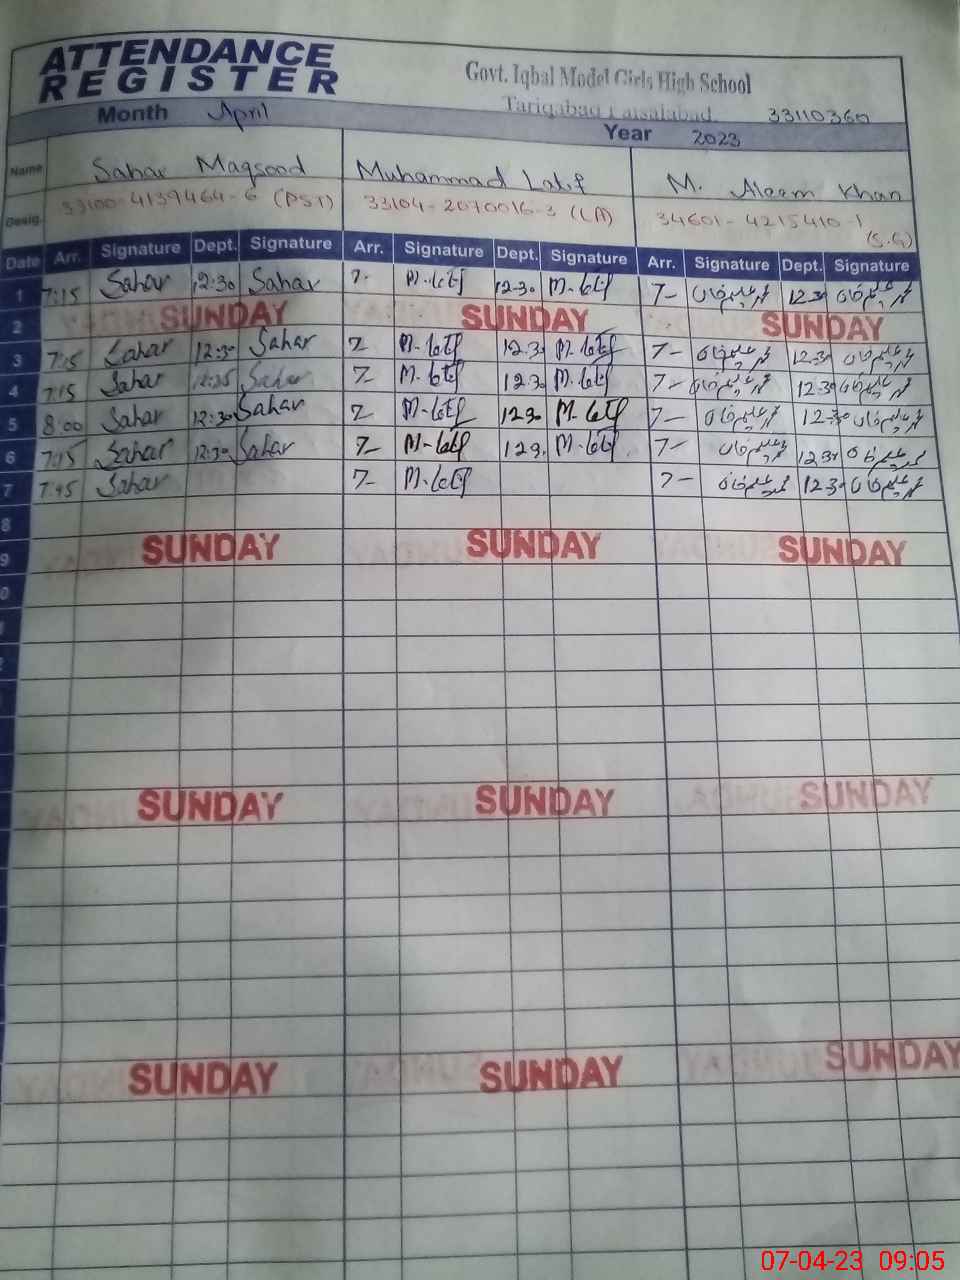 ATTENDANCE
REGISTER
Govt. Iqbal Model Girls High School
Tariqabad Faisalabad. 33110360
Month April Year 2023
Name Sahar Maqsood Muhammad Latif M. Aleem Khan
Desig. 33100-4139464-6 (PST) 33104-2070016-3 (LA) 34601-4215410-1 (S.G)
Date Arr. Signature Dept. Signature Arr. Signature Dept. Signature Arr. Signature Dept. Signature
1 7:15 Sahar 12:30 Sahar 7- M-Latif 12.30 M-Latif 7- محمد علیم خان 12.30 محمد علیم خان
2 SUNDAY SUNDAY SUNDAY
3 7:15 Sahar 12:30 Sahar 7- M-Latif 12.30 M-Latif 7- محمد علیم خان 12.30 محمد علیم خان
4 7:15 Sahar 12:25 Sahar 7- M-Latif 12.30 M-Latif 7- محمد علیم خان 12.30 محمد علیم خان
5 8:00 Sahar 12:30 Sahar 7- M-Latif 1230 M-Latif 7- محمد علیم خان 12.30 محمد علیم خان
6 7:15 Sahar 12:30 Sahar 7- M-Latif 12.30 M-Latif 7- محمد علیم خان 12.30 محمد علیم خان
7 7:45 Sahar 7- M-Latif 7- محمد علیم خان 12.30 محمد علیم خان
8
9 SUNDAY SUNDAY SUNDAY
0
SUNDAY SUNDAY SUNDAY
SUNDAY SUNDAY SUNDAY
07-04-23 09:05